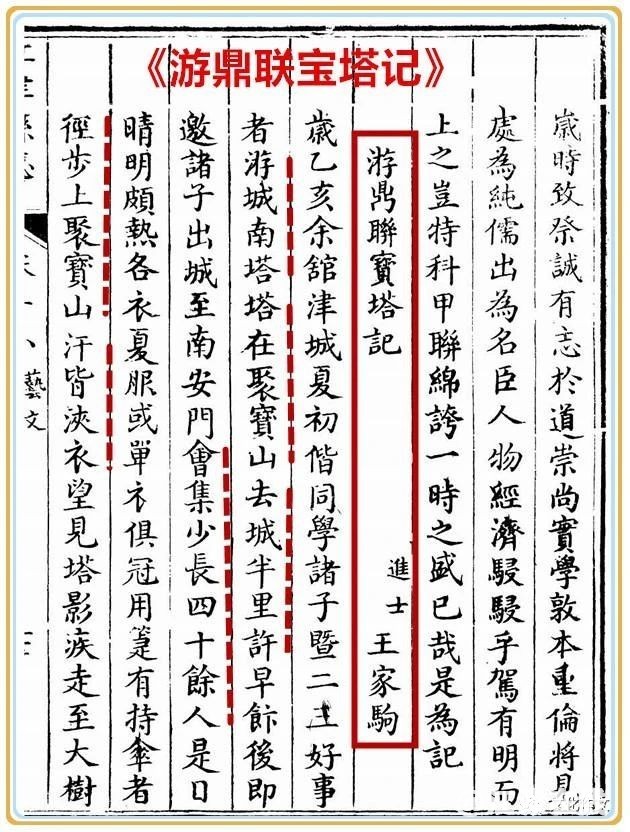 《游鼎联宝塔记》
歲時致祭誠有志於道崇尚實學敦本重倫將見
處為純儒出為名臣人物經濟駸駸乎駕有明而
上之豈特科甲聯綿誇一時之盛已哉是為記
游鼎聯寶塔記 進士 王家駒
歲乙亥余舘津城夏初偕同學諸子暨二三好事
者游城南塔塔在聚寶山去城半里許早飰後即
邀諸子出城至南安門會集少長四十餘人是日
晴明頗熱各衣夏服或單衣俱冠用箑有持傘者
徑步上聚寶山汗皆浹衣望見塔影疾走至大樹
藝文